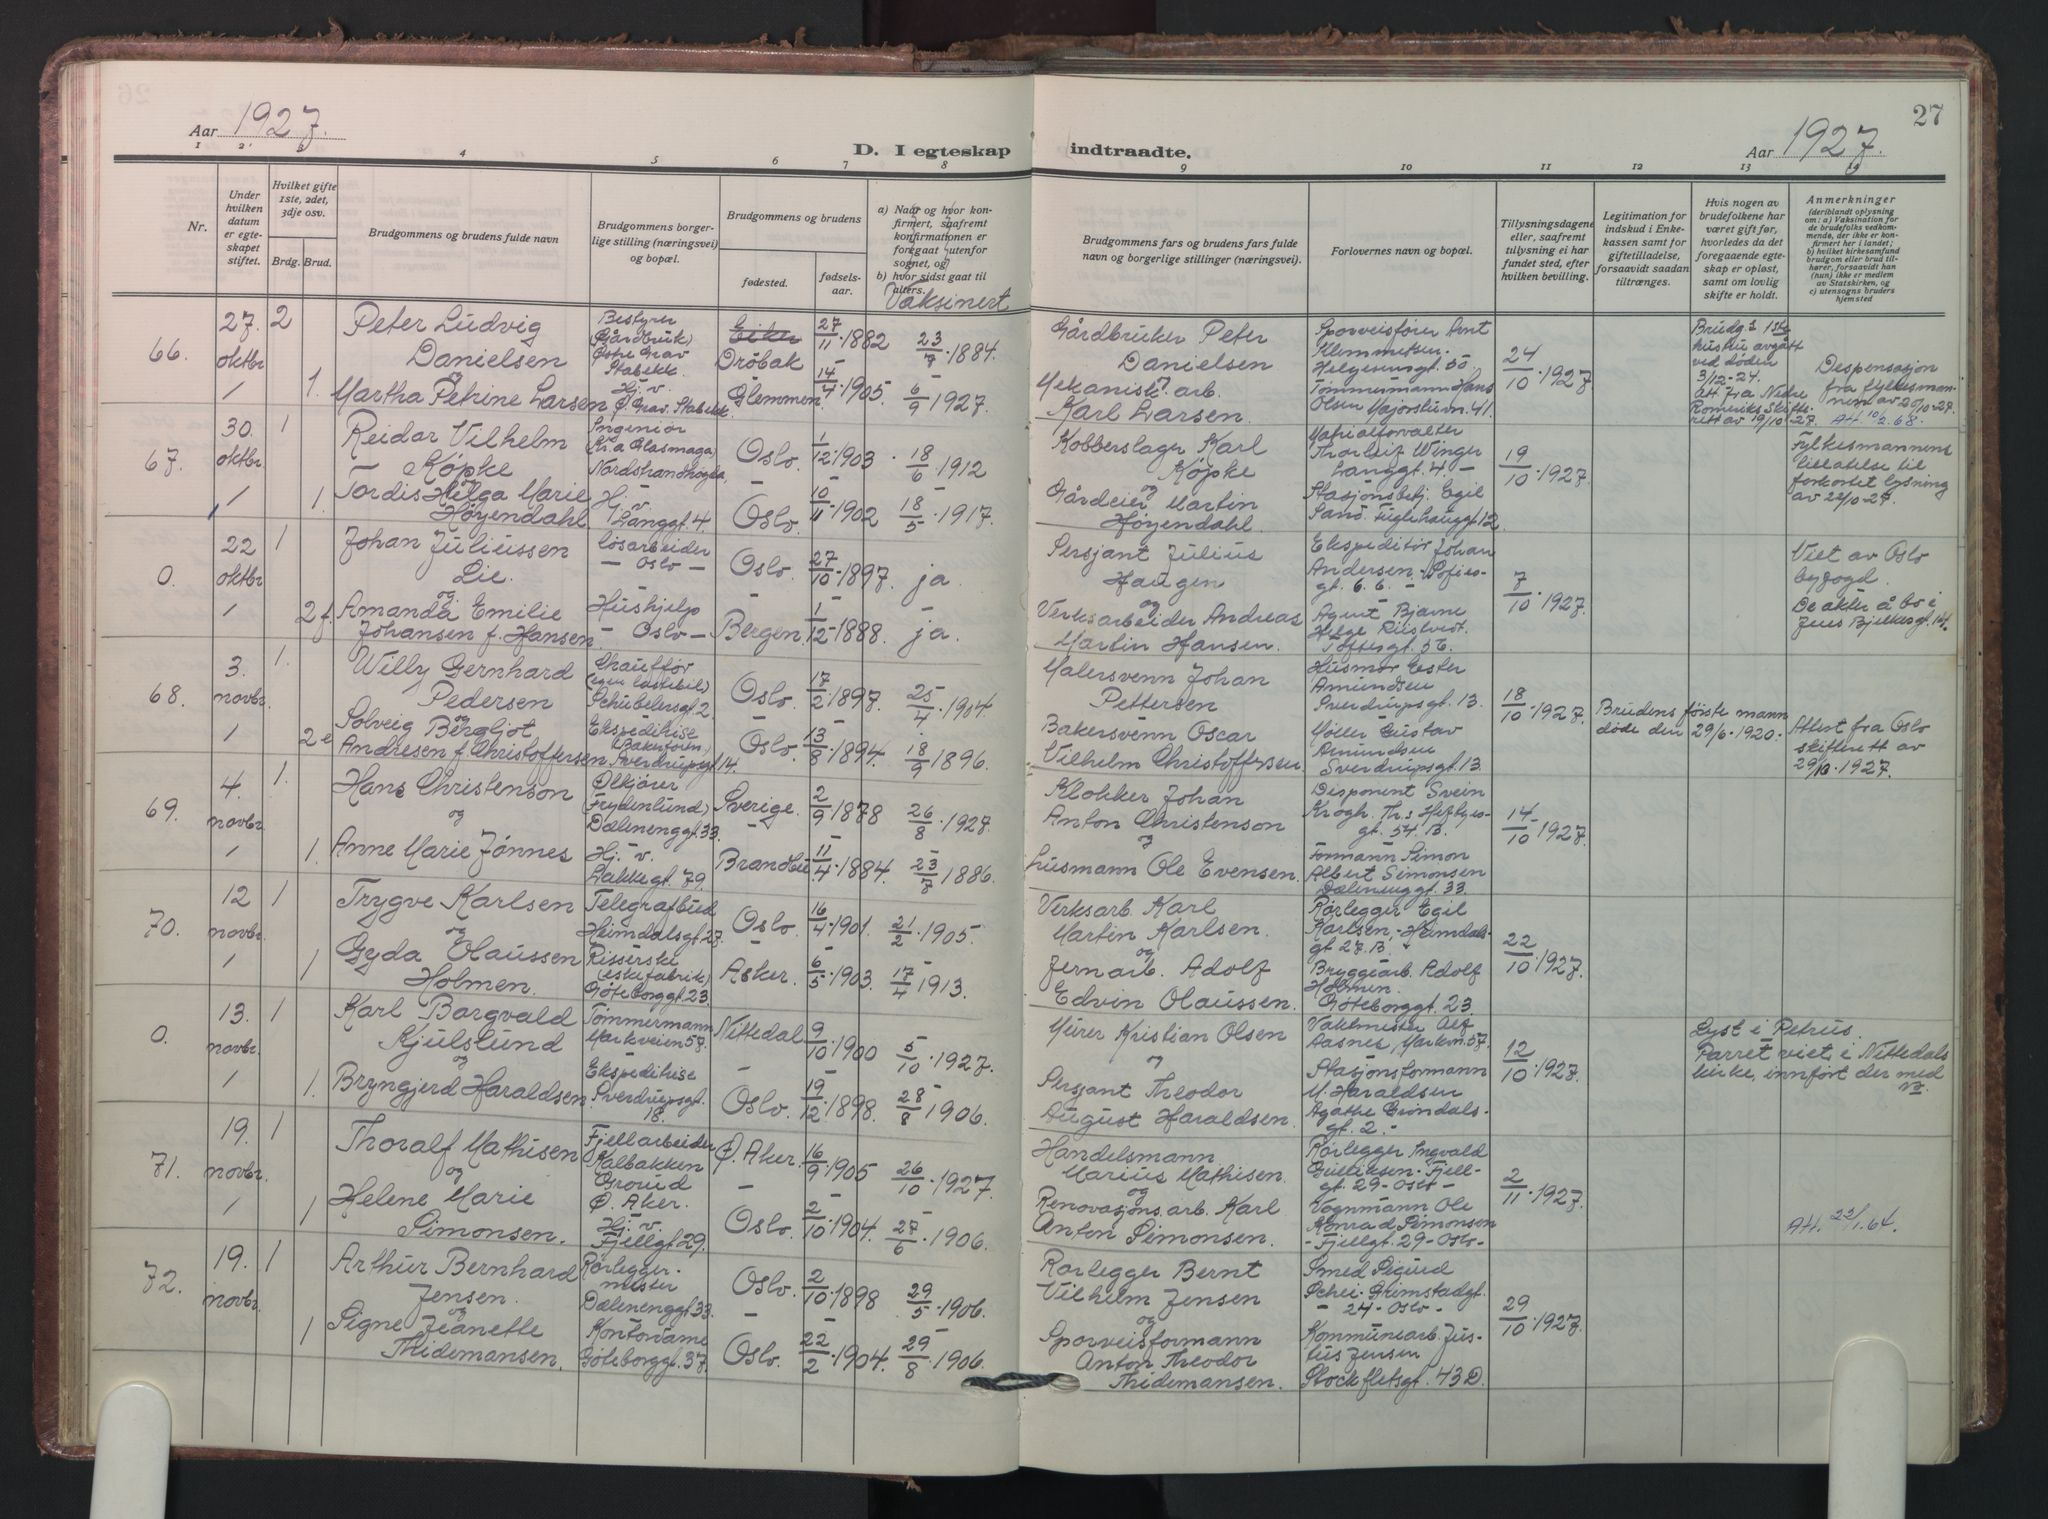 26
Aar 1927.
D. I egteskap
1 2 3 4 5 6 7 8
Nr.
Under hvilken datum er egteskapet stiftet.
Hvilket gifte 1ste, 2det, 3dje osv.
Brdg. Brud.
Brudgommens og brudens fulde navn
Brudgommens borgerlige stilling (næringsvei) og bopæl.
Brudgommens og brudens
fødested. fødselsaar.
a) Naar og hvor konfirmert, saafremt konfirmationen er foregaat utenfor sognet, og
b) hvor sidst gaat til alters.
Vaksinert
66. 27. oktbr 2 Peter Ludvig Danielsen Bestyrer (Gårdbruk) Østre Grav Stabekk. Eiker Drøbak 27/11 1882 23/7 1884.
og
1 1. Martha Petrine Larsen Hj. v. Ø. Grav. Stabekk. Glemmen 14/4 1905. 6/9 1927.
67. 30. oktbr. 1 Reidar Vilhelm Køpke Ingeniør (Kr.a Glasmaga) Nordstrandhøgda Oslo. 1/12 1903 18/6 1912
og
1 1. Tordis Helga Marie Høyendahl Hj. v. Langgt. 4. Oslo. 10/11 1902 18/5 1917.
0. 22 oktbr 1 Johan Juliussen Lie. Løsarbeider - Oslo - Oslo. 27/10 1897. ja.
og
1 2 f Amanda Emilie Johansen f. Hansen Hushjelp - Oslo - Bergen 1/12 1888. ja.
68. 3. novbr. 1. Willy Gernhard Pedersen Chauffør (egen lastebil) Schübelersgt. 2. Oslo. 17/2 1897 25/4 1904.
og
1 2 e Solveig Bergljot Andresen f. Christoffersen Ekspeditrise (Bakerforr.) Sverdrupsgt. 14. Oslo. 13/8 1894. 18/9 1896.
69. 4. novbr. 1. Hans Christenson Ølkjører (Frydenlund) Dælenenggt. 33. Sverige. 2/9 1878 26/8 1927.
og
1 1. Anne Marie Jønnes Hj. v. Lakkegt. 79. Brandbu 11/4 1884. 23/7 1886.
70. 12 novbr. 1 Trygve Karlsen Telegrafbud Heimdalsgt. 27. Oslo. 16/4 1901. 21/2 1905.
og
1 1 Gyda Olaussen Holmen. Risserske (eskefabrik) Gøteborggt. 23. Asker. 6/5 1903. 17/4 1913.
0. 13. novbr. 1 Karl Borgvald Kjulslund Tømmermann Markveien 57. Nittedal 9/10 1900 5/10 1927.
og
1 1. Bryngjerd Haraldsen Ekspeditrise Sverdrupsgt. 18. Oslo. 19/12 1898. 28/8 1906.
71. 19. novbr. 1 Thoralf Mathisen Fjellarbeider Kalbakken Grorud Ø. Aker. Ø. Aker. 16/9 1905 26/10 1927.
og
1 1 Helene Marie Simonsen. Hj. v. Fjellgt. 29. Oslo. 2/10 1904. 27/6 1906.
72. 19. novbr. 1 Arthur Bernhard Jensen. Rørleggermester Dælenenggt. 33. Oslo. 2/10 1898 29/5 1906.
og
1 Signe Jeanette Thidemansen. Kontordame Gøteborggt. 37. Oslo. 22/2 1904. 29/8 1906.
27
indtraadte.
Aar 1927.
9 10 11 12 13 14
Brudgommens fars og brudens fars fulde navn og borgerlige stillinger (næringsvei).
Forlovernes navn og bopæl.
Tillysningsdagene eller, saafremt tillysning ei har fundet sted, efter hvilken bevilling.
Legitimation for indskud i Enkekassen samt for giftetilladelse, forsaavidt saadan tiltrænges.
Hvis nogen av brudefolkene har været gift før, hvorledes da det foregaaende egteskap er opløst, samt om lovlig skifte er holdt.
Anmerkninger
(deriblandt oplysning om: a) Vaksination for de brudefolks vedkommende, der ikke er konfirmert her i landet; b) hvilket kirkesamfund brudgom eller brud tilhører, forsaavidt han (hun) ikke er medlem av Statskirken, og c) utensogns bruders hjemsted
Gårdbruker Peter Danielsen Sporveisfører Arnt Klemmetsen. Helgesensgt. 50 24/10 1927 Brudg.s 1ste hustru avgått ved døden 3/12-24. Att fra Nedre Romeriks Skifterett av 19/10-27. Despensasjon fra fylkesmannen av 20/10-27. Att. 10/2.68.
Mekanisk arb. Karl Larsen. Tømmermann Hans Olsen Majorstuvn. 41.
Kobberslager Karl Køpke Matrialforvalter Thorleif Winger Langgt. 4 - 19/10 1927. Fylkesmannens tillatelse til forkortet lysning av 22/10-27.
og
Gårdeier Martin Høyendahl. Stasjonsbetj. Egil Sand. Fuglehauggt. 12
Sersjant Julius Haugen Ekspeditør Johan Andersen - Sofiesgt. 6. 6. - 7/10 1927. Viet av Oslo byfogd. De akter å bo i Jens Bjelkesgt. 14.
og
Verksarbeider Andreas Martin Hansen. Agent Bjarne Helge Riistvedt. Toftesgt. 56.
Malersvenn Johan Pettersen Husmor Ester Amundsen Sverdrupsgt. 13. 18/10 1927. Brudens første mann døde den 29/6-1920. Attest fra Oslo skifterett av 29/10-1927.
Bakersvenn Oscar Vilhelm Christoffersen Møller Gustav Amundsen Sverdrupsgt. 13.
Klokker Johan Anton Christenson Disponent Svein Krogh. Th.s Heftyesgt. 54. B. 14/10 1927.
og
Husmann Ole Evensen. Formann Simon Albert Simonsen Dælenenggt. 33.
Verksarb. Karl Martin Karlsen. Rørlegger Egil Karlsen, - Heimdalsgt. 27. B. 22/10 1927.
og
Jernarb. Adolf Edvin Olaussen. Bryggearb. Adolf Holmen. Gøteborggt. 23.
Murer Kristian Olsen Vaktmester Alf Aasnes, Markvn. 57. 12/10 1927. Lyst i Petrus. Parret viet i Nittedals kirke, innført der med nr.
og
Sersjant Theodor August Haraldsen. Stasjonsformann M. Haraldsen Agathe Grøndalsgt. 2. -
Handelsmann Marius Mathisen. Rørlegger Ingvald Gulliksen - Fjellgt. 29 - Oslo - 2/11 1927.
og
Renovasjonsarb. Karl Anton Simonsen. Vognmann Ole Konrad Simonsen - Fjellgt. 29 - Oslo - Att. 22/1.64.
Rørlegger Bernt Vilhelm Jensen Smed Sigurd Schei. Grimstadgt. - 24 - Oslo - 29/10 1927.
og
Sporveisformann Anton Theodor Thidemansen. Kommunearb. Justus Jensen Stockfletsgt. 43 D.